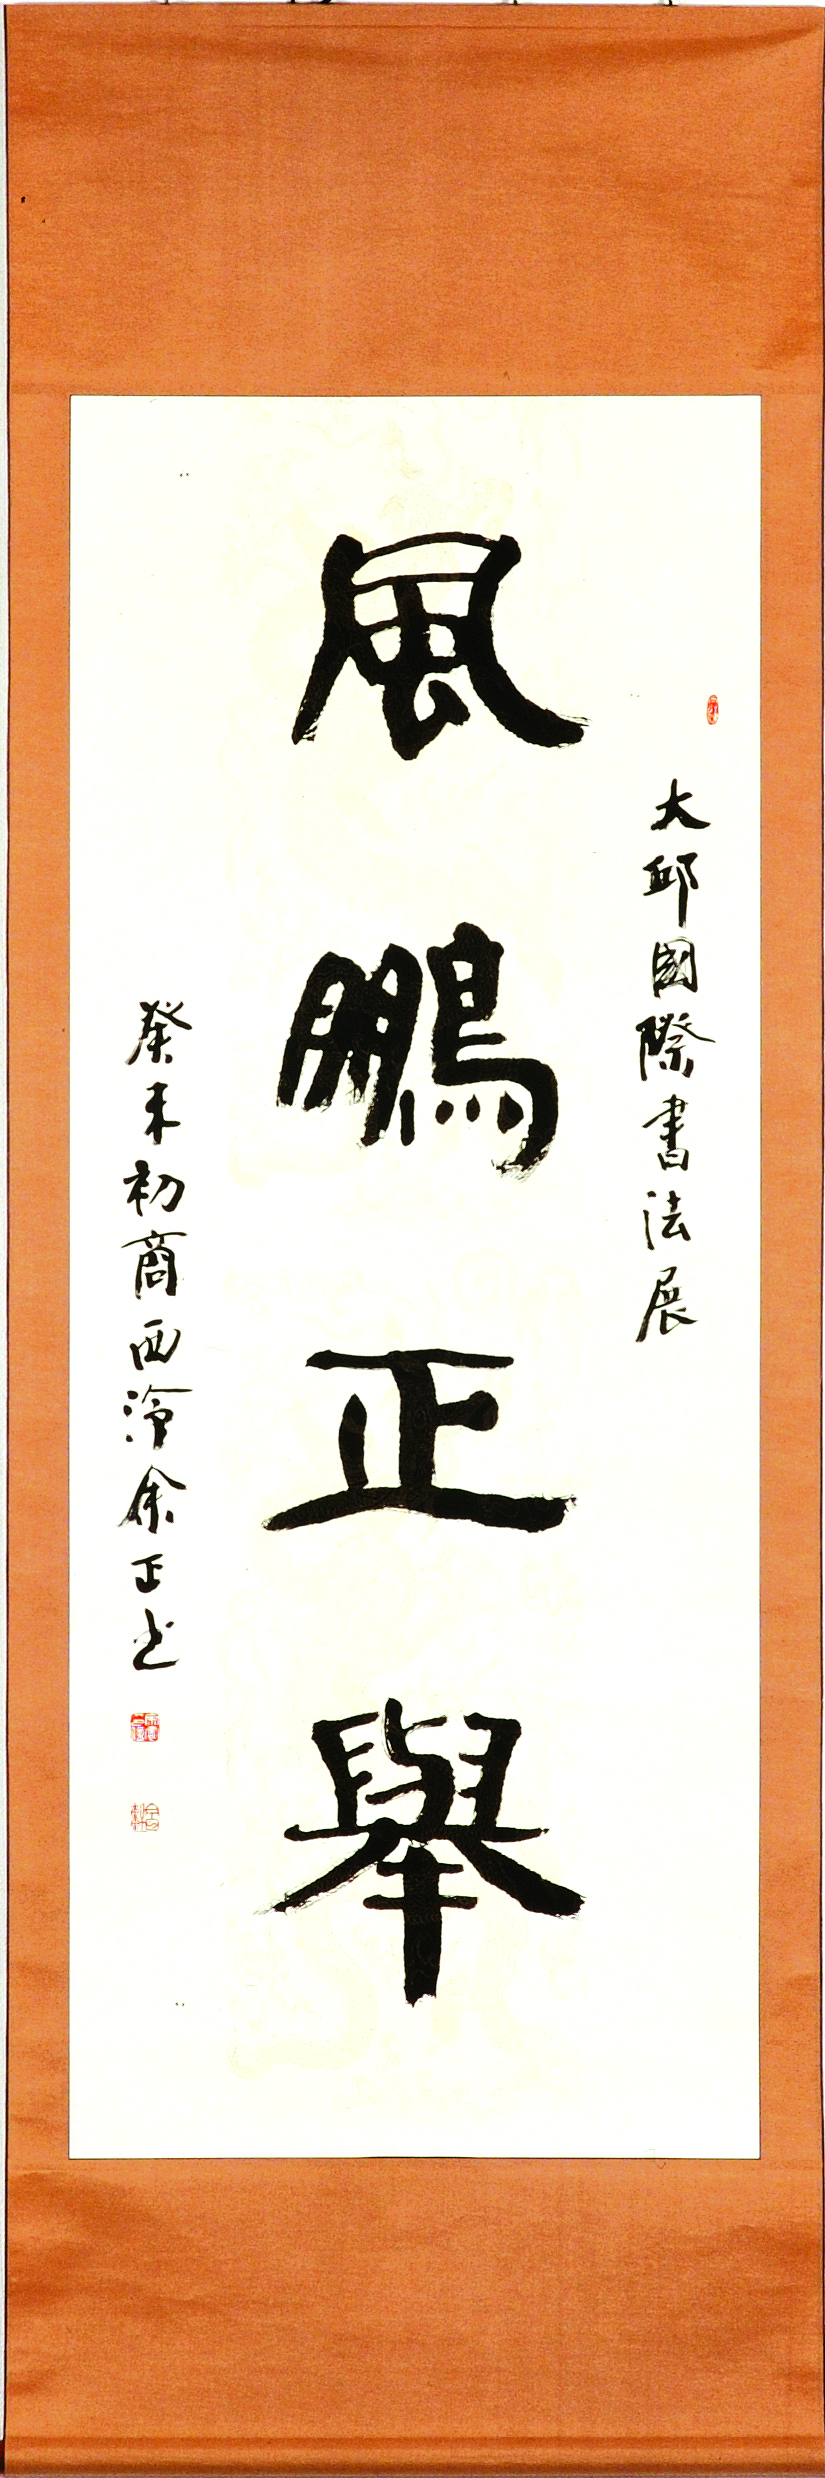 大邱國際書法展
風鵬正舉
癸未初商西泠余正書